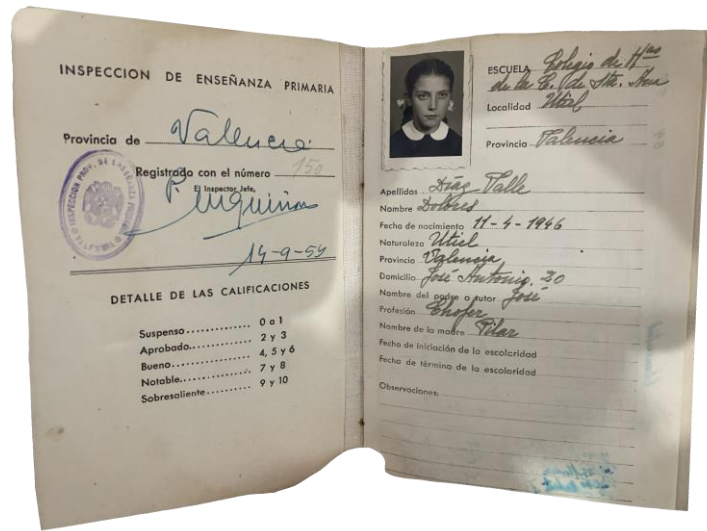 INSPECCION DE ENSEÑANZA PRIMARIA
Provincia de Valencia
Registrado con el número 150
El Inspector Jefe,
14-9-59
DETALLE DE LAS CALIFICACIONES
Suspenso............. 0 a 1
Aprobado............. 2 y 3
Bueno............. 4, 5 y 6
Notable............. 7 y 8
Sobresaliente.......... 9 y 10
ESCUELA Colegio de Hªs
de la C. de Sta. Ana
Localidad Utiel
Provincia Valencia
Apellidos Díaz Valle
Nombre Dolores
Fecha de nacimiento 11-4-1946
Naturaleza Utiel
Provincia Valencia
Domicilio José Antonio, 20
Nombre del padre o tutor José
Profesión Chofer
Nombre de la madre Pilar
Fecha de iniciación de la escolaridad
Fecha de término de la escolaridad
Observaciones: